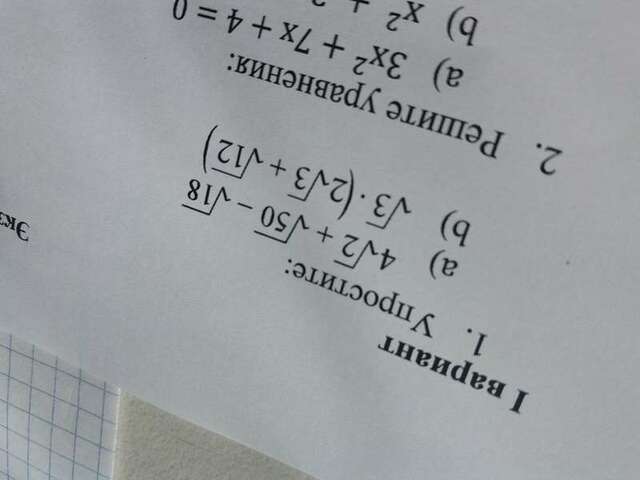 I вариант
1. Упростите:
a) 4√2 + √50 − √18
b) √3 · (2√3 + √12)
2. Решите уравнения:
a) 3x² + 7x + 4 = 0
b) x² +